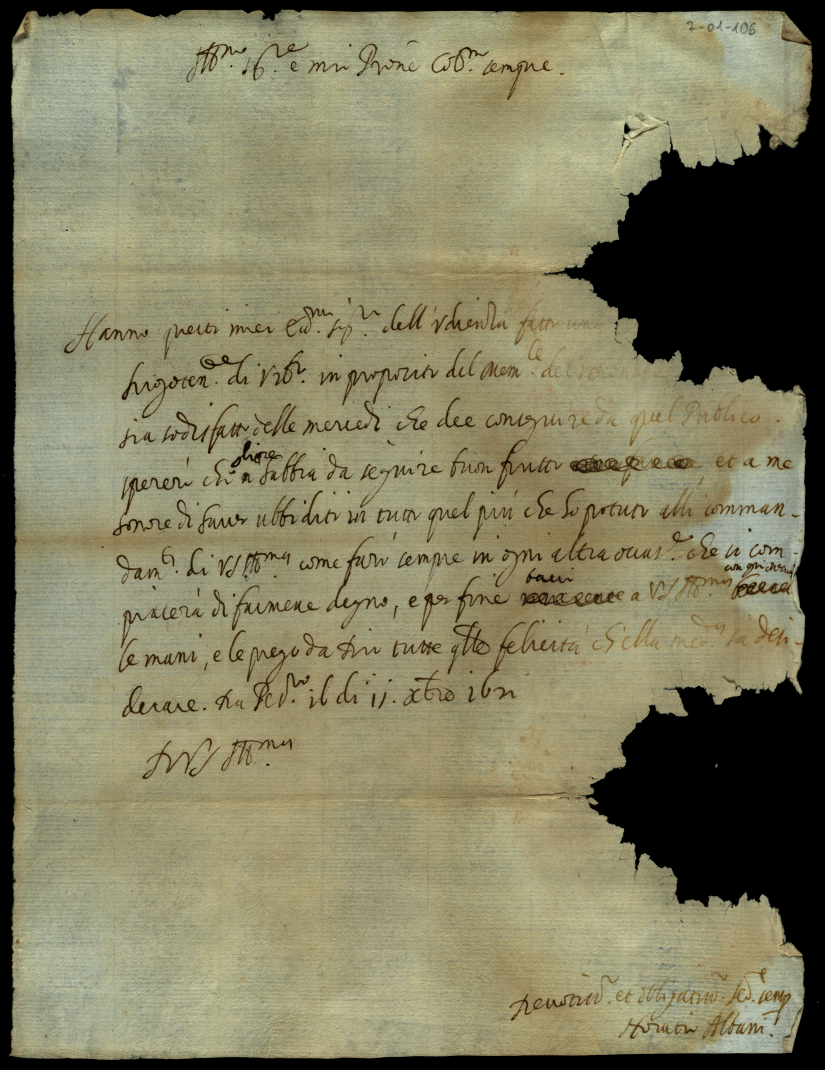 7-01-106
Ill.mo Sig.re e mio Prone Col.mo sempre.
Hanno questi miei Ecc.mi Sig.ri dell'Udienza fatto una
luogoten.te di Urb.o in proposito del Mem.le del
sia sodisfatto delle mercedi che dee conseguire da quel Publico.
spererò che abbia da seguire buon frutto et a me
honore di haver ubbidito in tutto quel più che ho potuto alli comman-
dam.ti di VS Ill.ma come farò sempre in ogni altra occas.e che si com-
piacerà di farmene degno, e per fine bacio a VS Ill.ma con ogni
le mani, e le prego da Dio tutte q.lle felicità ch'ella med.ma sà desi-
derare. Da il dì 11. Xbro
Di VS Ill.ma
Devotiss.o et obligatiss.o Se.re semp
Horatio Albani